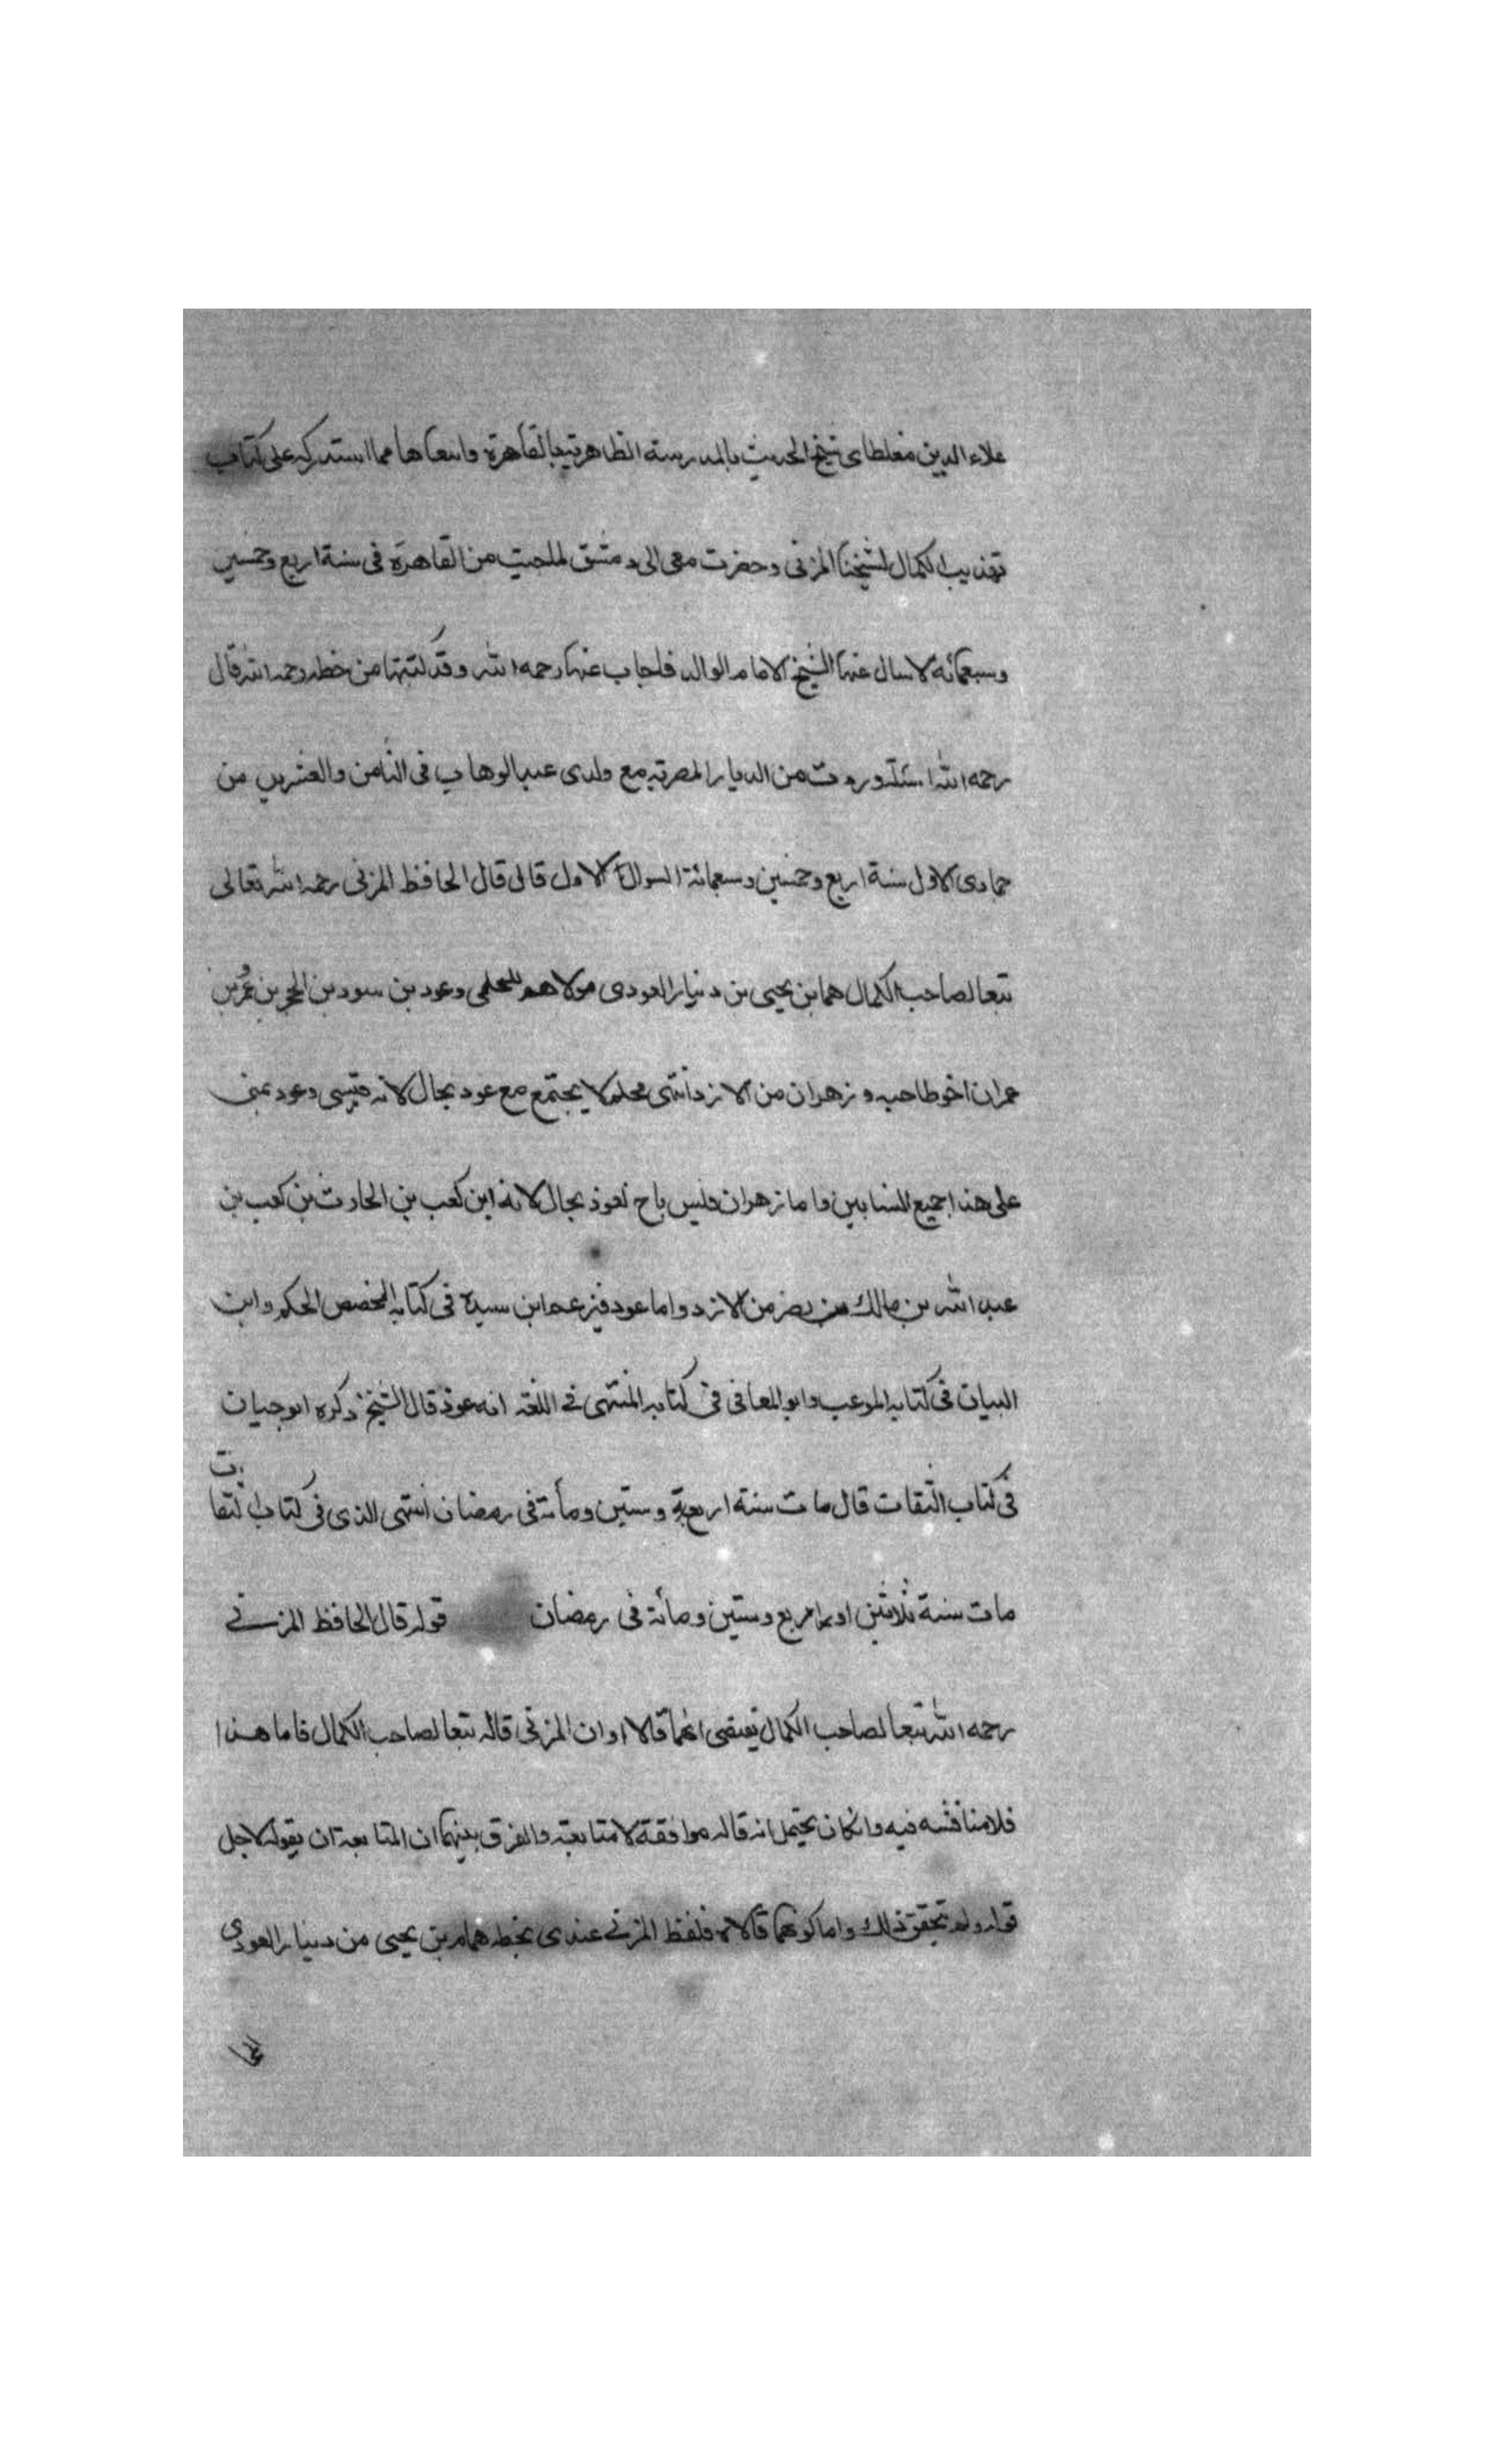 علاء الدين مغلطاى شيخ الحديث بالمدرسة الظاهرية بالقاهرة وانتقاها مما استدركه على كتاب
تهذيب الكمال لشيخنا المزنى وحضرت معى الى دمشق لما جيت من القاهرة فى سنة اربع وخمسين
وسبعمائة لاسال عنها الشيخ الامام الوالد فاجاب عنها رحمه الله وقد كتبتها من خطه رحمه الله قال
رحمه الله وردت من الديار المصرية مع ولدى عبد الوهاب فى الثامن والعشرين من
جمادى الاول سنة اربع وخمسين وسبعمائة السوال الاول قال قال الحافظ المزنى رحمه الله تعالى
تبعا لصاحب الكمال همابن يحيى بن دنيار العودى مولاهم المحلمى وعود بن سود بن الحجر بن عمر بن
عمران اخو طاحيه وزهران من الازد انتهى محلم لا يجتمع مع عود بحال لانه قيسى وعود يمنى
على هذا جميع النسابين واما زهران فليس باخ لعوذ بحال لانه ابن كعب بن الحارث بن كعب بن
عبد الله بن مالك بن نصر من الازد واما عود فيزعم ابن سيدة فى كتابه المخصص المحكم وابن
البيان فى كتابه الموعب وابو المعافى فى كتابه المنتهى فى اللغة انه عوذ قال الشيخ ذكره ابو حيان
فى كتاب الثقات قال مات سنة اربعة وستين ومأة فى رمضان انتهى الذى فى كتاب الثقات
مات سنة ثلاثين او اربع وستين ومأة فى رمضان قوله قال الحافظ المزنى
رحمه الله تبعا لصاحب الكمال تقتضى انهما قالا او ان المزنى قاله تبعا لصاحب الكمال فاما هذا
فلا مناقشه فيه وان كان يحتمل انه قاله موافقة لا متابعة والفرق بينهما ان المتابعة ان يقوله لاجل
قوله ولم تحقق ذلك واما كونهما قالاه فلفظ المزنى عندى بخطه همام بن يحيى من دينار العودى